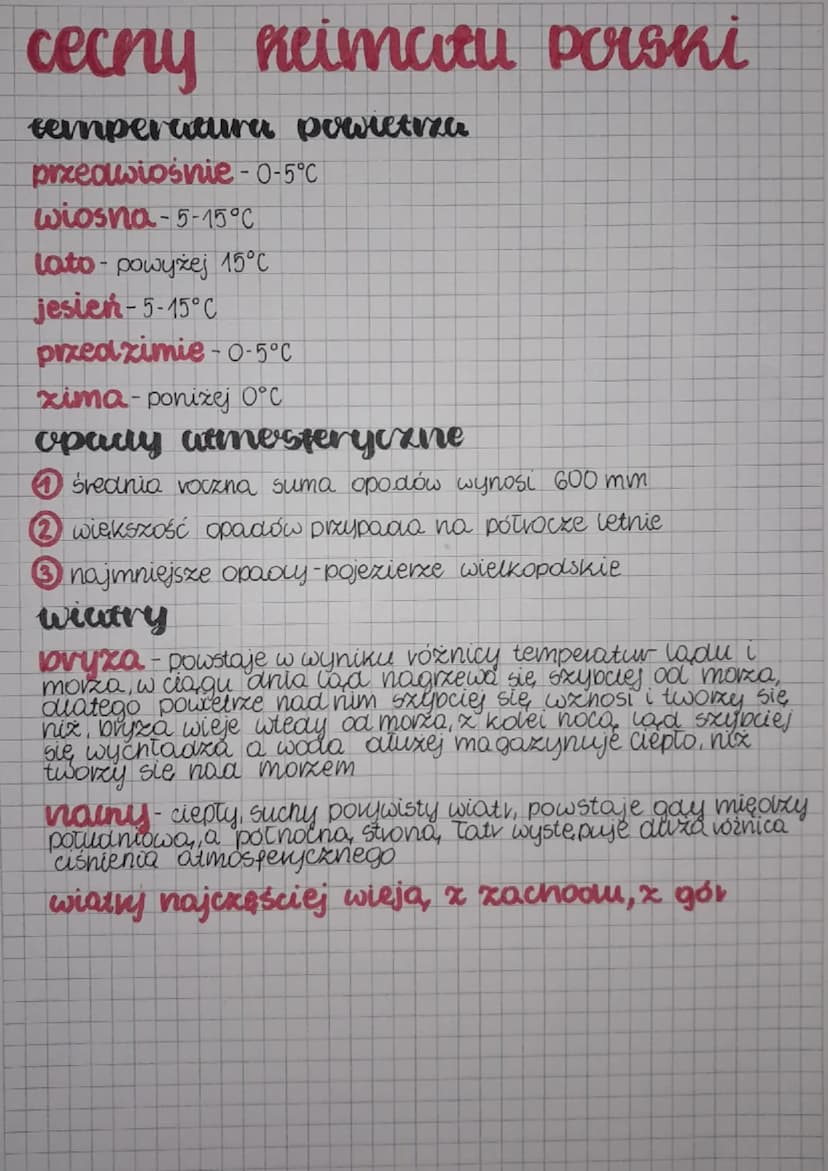 cechy klimatu polski
temperatura powietrza
przedwiośnie - 0-5°C
wiosna - 5-15°C
lato - powyżej 15°C
jesień - 5-15°C
przedzimie - 0-5°C
zima - poniżej 0°C
opady atmosferyczne
1 średnia roczna suma opadów wynosi 600 mm
2 większość opadów przypada na półrocze letnie
3 najmniejsze opady - pojezierze wielkopolskie
wiatry
bryza - powstaje w wyniku różnicy temperatur lądu i
morza, w ciągu dnia ląd nagrzewa się szybciej od morza,
dlatego powietrze nad nim szybciej się wznosi i tworzy się
niż, bryza wieje wtedy od morza, z kolei nocą ląd szybciej
się wychładza a woda dłużej magazynuje ciepło, niż
tworzy się nad morzem
halny - ciepły, suchy porywisty wiatr, powstaje gdy między
południową, a północną stroną Tatr występuje duża różnica
ciśnienia atmosferycznego
wiatry najczęściej wieją z zachodu, z gór